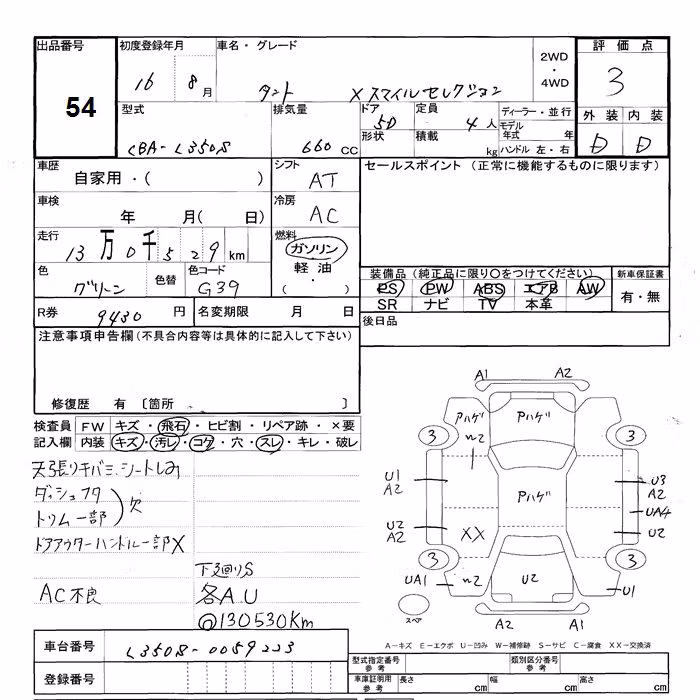 出品番号 初度登録年月 車名・グレード 2WD・4WD 評価点
54 16 8月 タント Xスマイルセレクション 3
型式 排気量 ドア 定員 ディーラー・並行 外装 内装
CBA-L350S 660cc 5D 4人 モデル年式 年 D D
形状 積載 kg ハンドル 左・右
車歴 自家用・( ) シフト AT セールスポイント (正常に機能するものに限ります)
車検 年 月( 日) 冷房 AC
走行 13万0千529km 燃料 ガソリン 軽油・( )
色 グリーン 色替 色コード G39 装備品 (純正品に限り○をつけてください) 新車保証書
PS PW ABS エアB AW 有・無
SR ナビ TV 本革
R券 9430円 名変期限 月 日 後日品
注意事項申告欄 (不具合内容等は具体的に記入して下さい)
修復歴 有 〔箇所 〕
検査員 FW キズ・飛石・ヒビ割・リペア跡・×要
記入欄 内装 キズ・汚レ・コゲ・穴・スレ・キレ・破レ
天張りキバミ、シートしみ
ダッシュフタ
トリム一部 )欠
ドアアウターハンドル一部X
下廻りS
AC不良 各A.U
@130530Km
A1 A2
Pハゲ Pハゲ
3 W2 3
U1 A2 Pハゲ U3 A2
UA4
U2 A2 XX U2
3 3
UA1 W2 U2 U1
スペア
A2 A1
A-キズ E-エクボ U-凹み W-補修跡 S-サビ C-腐食 XX-交換済
車台番号 L350S-0059223
登録番号
型式指定番号 参考 類別区分番号 参考
車庫証明用 参考 長さ cm 幅 cm 高さ cm